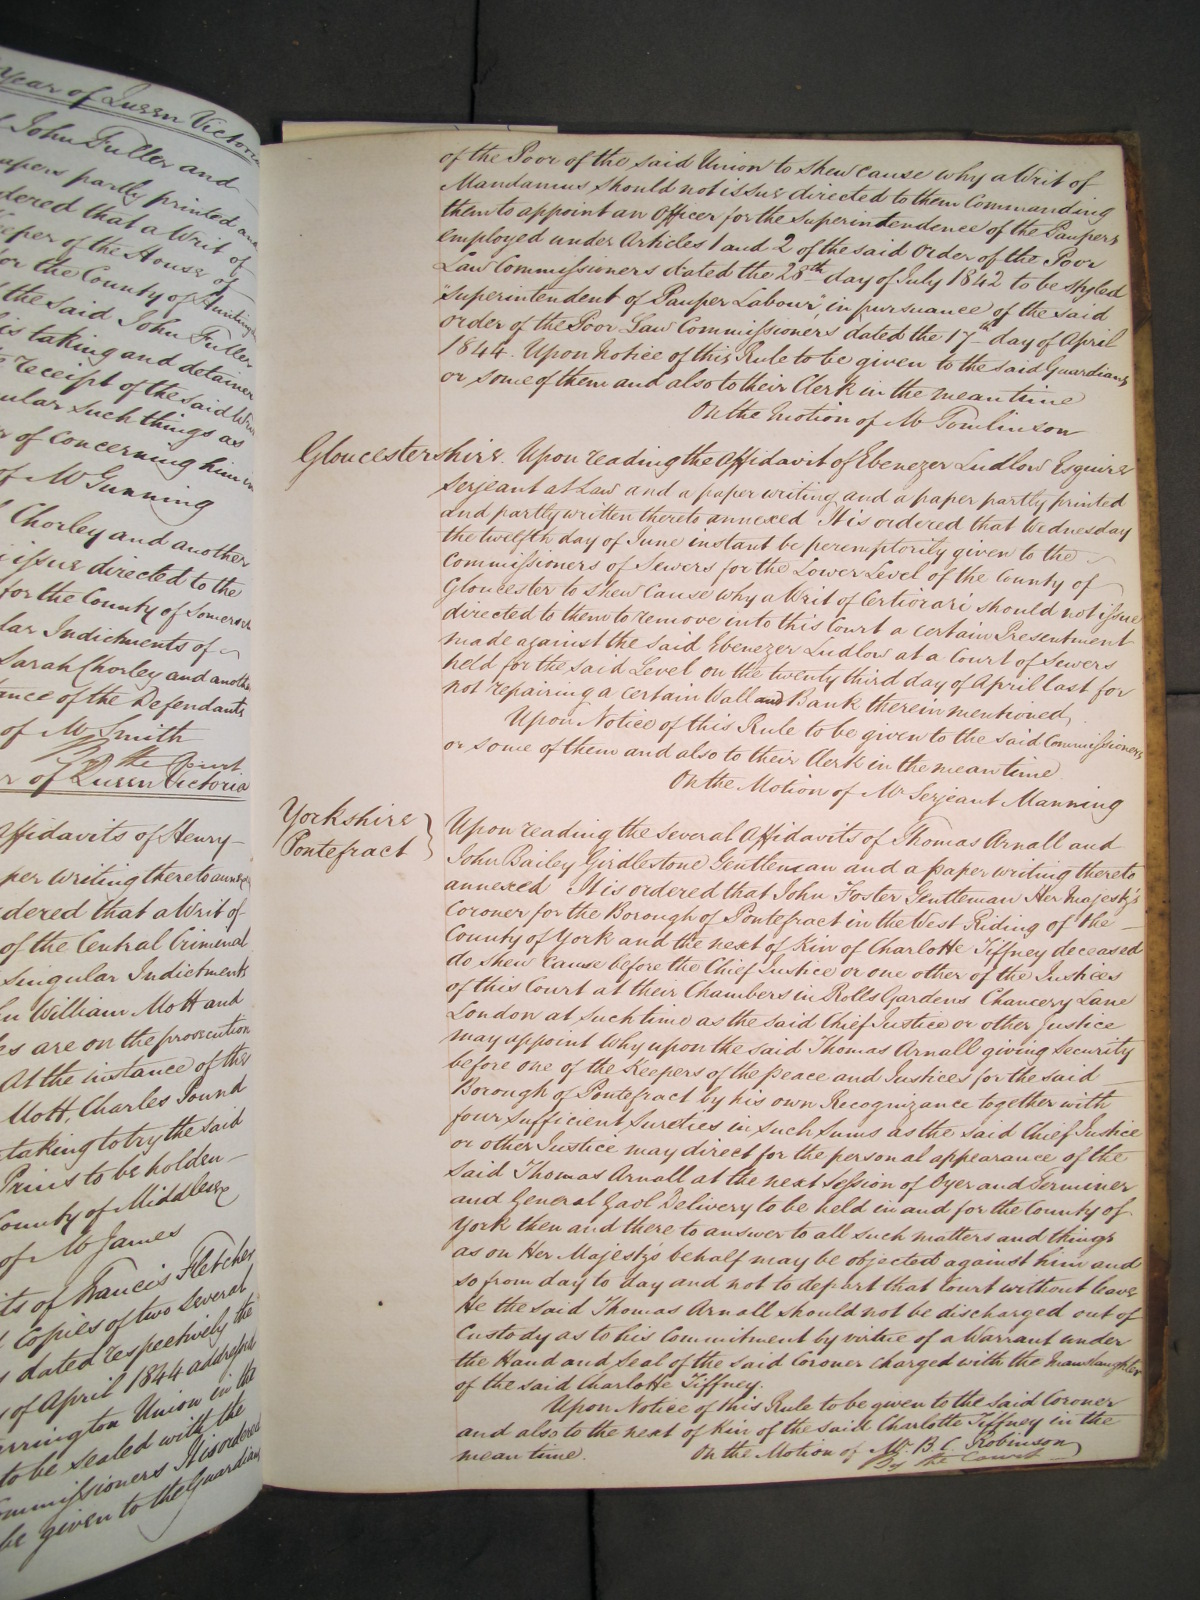 Year of Queen Victoria
John Fuller and
papers partly printed and
dered that a Writ of
eeper of the House of
or the County of
the said John Fuller
his taking and detainer
receipt of the said Writ
ular such things as
of concerning him in
of Mr Gunning
Chorley and another
issue directed to the
for the County of Somerset
lar Indictments of
Sarah Chorley and another
tance of the Defendants
of Mr Smith
By the Court
r of Queen Victoria
Affidavits of Henry
per writing thereto annexed
dered that a Writ of
of the Central Criminal
singular Indictments
William Mott and
es are on the prosecution
At the instance of the
Mott, Charles Pound
taking to try the said
Prius to be holden
County of Middlesex
of Mr James
its of Francis Fletcher
copies of two several
dated respectively the
of April 1844 addressed
Union in the
to be sealed with the
ommissioners It is ordered
be given to the Guardians
of the Poor of the said Union to shew cause why a Writ of
Mandamus should not issue directed to them Commanding
them to appoint an Officer for the superintendence of the Paupers
employed under Articles 1 and 2 of the said Order of the Poor
Law Commissioners dated the 28th day of July 1842 to be styled
"Superintendent of Pauper Labour", in pursuance of the said
Order of the Poor Law Commissioners dated the 17th day of April
1844. Upon Notice of this Rule to be given to the said Guardians
or some of them and also to their Clerk in the mean time
On the motion of Mr Tomlinson
Gloucestershire. Upon reading the Affidavit of Ebenezer Ludlow Esquire
Serjeant at Law and a paper writing and a paper partly printed
and partly written thereto annexed It is ordered that Wednesday
the twelfth day of June instant be peremptorily given to the
Commissioners of Sewers for the Lower Level of the County of
Gloucester to shew Cause why a Writ of Certiorari should not issue
directed to them to remove into this Court a certain Presentment
made against the said Ebenezer Ludlow at a Court of Sewers
held for the said Level on the twenty third day of April last for
not repairing a certain Wall and Bank therein mentioned,
Upon Notice of this Rule to be given to the said Commissioners
or some of them and also to their Clerk in the mean time
On the Motion of Mr Serjeant Manning
Yorkshire
Pontefract
Upon reading the several Affidavits of Thomas Arnall and
John Bailey Girdlestone Gentleman and a paper writing thereto
annexed It is ordered that John Foster Gentleman Her Majesty's
Coroner for the Borough of Pontefract in the West Riding of the
County of York and the next of Kin of Charlotte Tiffney deceased
do shew Cause before the Chief Justice or one other of the Justices
of this Court at their Chambers in Rolls Gardens Chancery Lane
London at such time as the said Chief Justice or other Justice
may appoint why upon the said Thomas Arnall giving Security
before one of the Keepers of the peace and Justices for the said
Borough of Pontefract by his own Recognizance together with
four sufficient Sureties in such Sums as the said Chief Justice
or other Justice may direct for the personal appearance of the
said Thomas Arnall at the next Session of Oyer and Terminer
and General Gaol Delivery to be held in and for the County of
York then and there to answer to all such matters and things
as on Her Majesty's behalf may be objected against him and
so from day to day and not to depart that Court without leave
He the said Thomas Arnall should not be discharged out of
Custody as to his Commitment by virtue of a Warrant under
the Hand and Seal of the said Coroner charged with the Manslaughter
of the said Charlotte Tiffney.
Upon Notice of this Rule to be given to the said Coroner
and also to the next of Kin of the said Charlotte Tiffney in the
mean time. On the Motion of Mr B. C. Robinson
By the Court